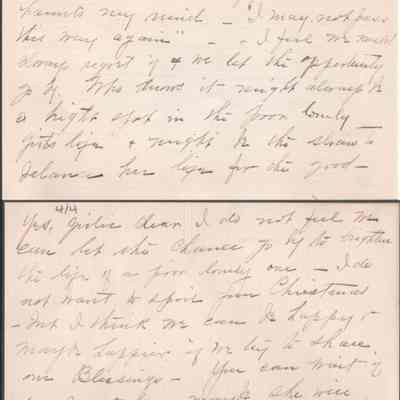 haunts my mind - "I may not pass
this way again" - - I feel we would
always regret if & we let the opportunity
go by. Who knows it might always be
a bright spot in the poor lonely
girls life & might be the straw to
balance her life for the good -
4/4
Yes, Girlie dear I do not feel we
can let the chance go by to brighten
the life of a poor lonely one - I do
not want to spoil your Christmas
- but I think we can be happy &
maybe happier if we try to share
our Blessings - You can write if
maybe she will